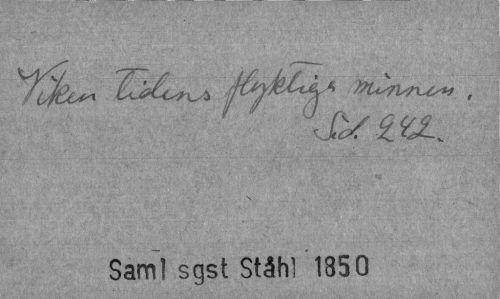 Viken tidens flyktiga minnen.
Sid. 242.
Saml sgst Ståhl 1850